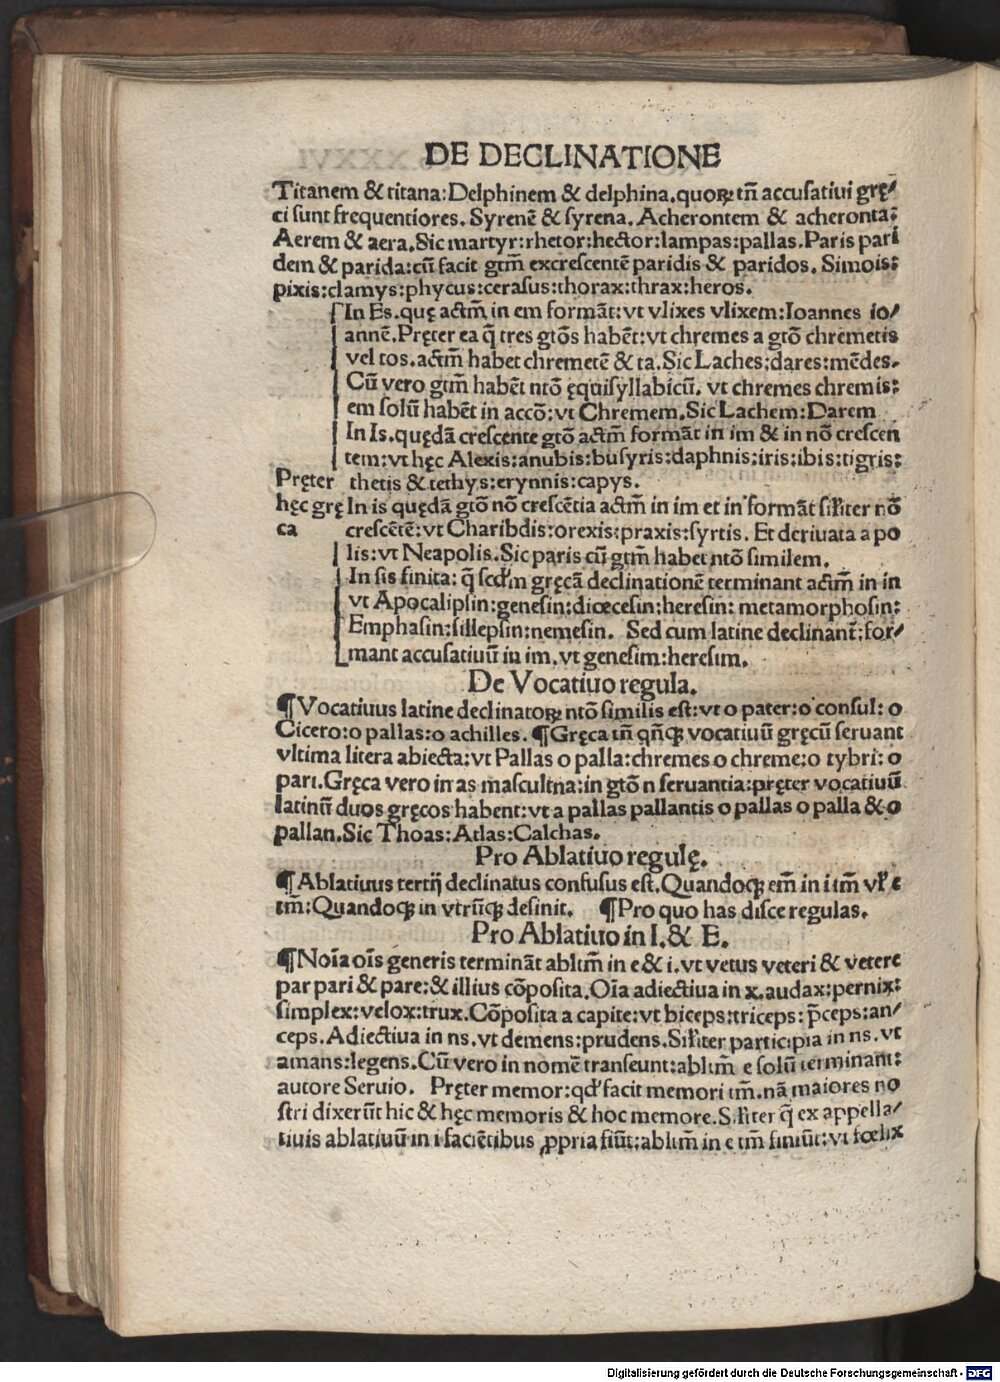 DE DECLINATIONE
Titanem & titana:Delphinem & delphina.quoꝝ tñ accusatiui grę/
ci sunt frequentiores. Syrenē & syrena. Acherontem & acheronta:
Aerem & aera.Sic martyr:rhetor:hector:lampas:pallas.Paris pari
dem & parida:cū facit gtm̄ excrescentē paridis & paridos. Simois:
pixis:clamys:phycus:cerasus:thorax:thrax:heros.
In Es.quę actm̄ in em formāt:vt vlixes vlixem:Ioannes io/
annē.Pręter ea q̄ tres gtōs habēt:vt chremes a gtō chremetis
vel tos.actm̄ habet chremetē & ta.Sic Laches:dares:mēdes.
Cū vero gtm̄ habēt ntō ęquisyllabicū. vt chremes chremis:
em solū habēt in accō:vt Chremem.Sic Lachem:Darem
In Is.quędā crescente gtō actm̄ formāt in im & in nō crescen
tem:vt hęc Alexis:anubis:busyris:daphnis:iris:ibis:tigris:
Pręter thetis & tethys:erynnis:capys.
hęc grę In is quędā gtō nō crescētia actm̄ in im et in formāt sil̄iter nō
ca crescētē:vt Charibdis:orexis:praxis:syrtis. Et deriuata a po
lis:vt Neapolis.Sic paris cū gtm̄ habet ntō similem.
In sis finita: q̄ scd̄m gręcā declinationē terminant actm̄ in in
vt Apocalipsin:genesin:diœcesin:heresin: metamorphosin:
Emphasin:sillepsin:nemesin. Sed cum latine declinant̄:for/
mant accusatiuū in im.vt genesim:heresim.
De Vocatiuo regula.
¶Vocatiuus latine declinatoꝝ ntō similis est:vt o pater:o consul: o
Cicero:o pallas:o achilles. ¶Gręca tñ qñqꝫ vocatiuū gręcū seruant
vltima litera abiecta:vt Pallas o palla:chremes o chreme:o tybri: o
pari.Gręca vero in as masculina:in gtō n seruantia:pręter vocatiuū
latinū duos gręcos habent:vt a pallas pallantis o pallas o palla & o
pallan.Sic Thoas:Atlas:Calchas.
Pro Ablatiuo regulę.
¶Ablatiuus tertij declinatus confusus est.Quandoqꝫ em̄ in i tm̄ vl̄ e
tm̄:Quandoqꝫ in vtrūqꝫ desinit. ¶Pro quo has disce regulas.
Pro Ablatiuo in I.& E.
¶Noīa oīs generis termināt abltm̄ in e & i.vt vetus veteri & vetere
par pari & pare:& illius cōposita.Oīa adiectiua in x.audax:pernix:
simplex:velox:trux.Cōposita a capite:vt biceps:triceps:p̄ceps:an/
ceps.Adiectiua in ns.vt demens:prudens.Sil̄iter participia in ns.vt
amans:legens.Cū vero in nomē transeunt:abltm̄ e solū terminant:
autore Seruio. Pręter memor:qd̄ facit memori tm̄.nā maiores no
stri dixerūt hic & hęc memoris & hoc memore.Sil̄iter q̄ ex appella/
tiuis ablatiuū in i faciētibus ꝓpria fiūt:abltm̄ in e tm̄ finiūt:vt fœlix
Digitalisierung gefördert durch die Deutsche Forschungsgemeinschaft - DFG